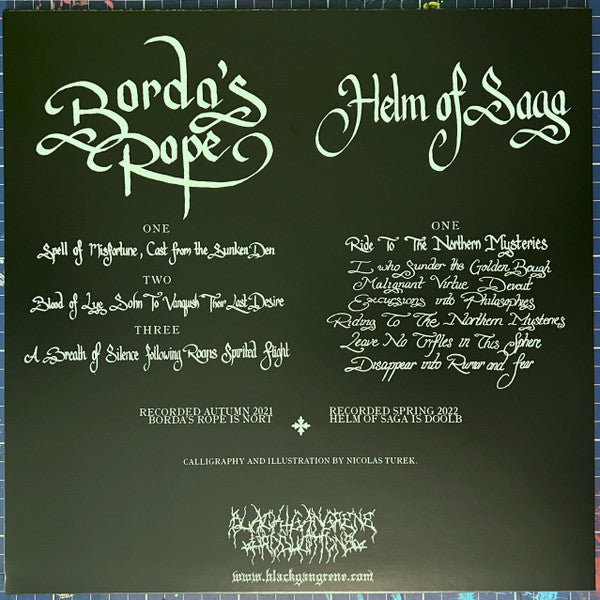 Borda's
Rope
ONE
Spell of Misfortune, Cast from the Sunken Den
TWO
Blood of Lye Sohn To Vanquish Their Last Desire
THREE
A Breath of Silence following Roans Spirited flight
Helm of Saga
ONE
Ride To The Northern Mysteries
I who Sunder the Golden Bough
Malignant Virtue Devout
Excursions into Philosophies
Riding To The Northern Mysteries
Leave No Trifles in This Sphere
Disappear into Rumor and fear
RECORDED AUTUMN 2021
BORDA'S ROPE IS NORT
RECORDED SPRING 2022
HELM OF SAGA IS DOOLB
CALLIGRAPHY AND ILLUSTRATION BY NICOLAS TUREK.
BLACK GANGRENE
PRODUCTIONS
www.blackgangrene.com